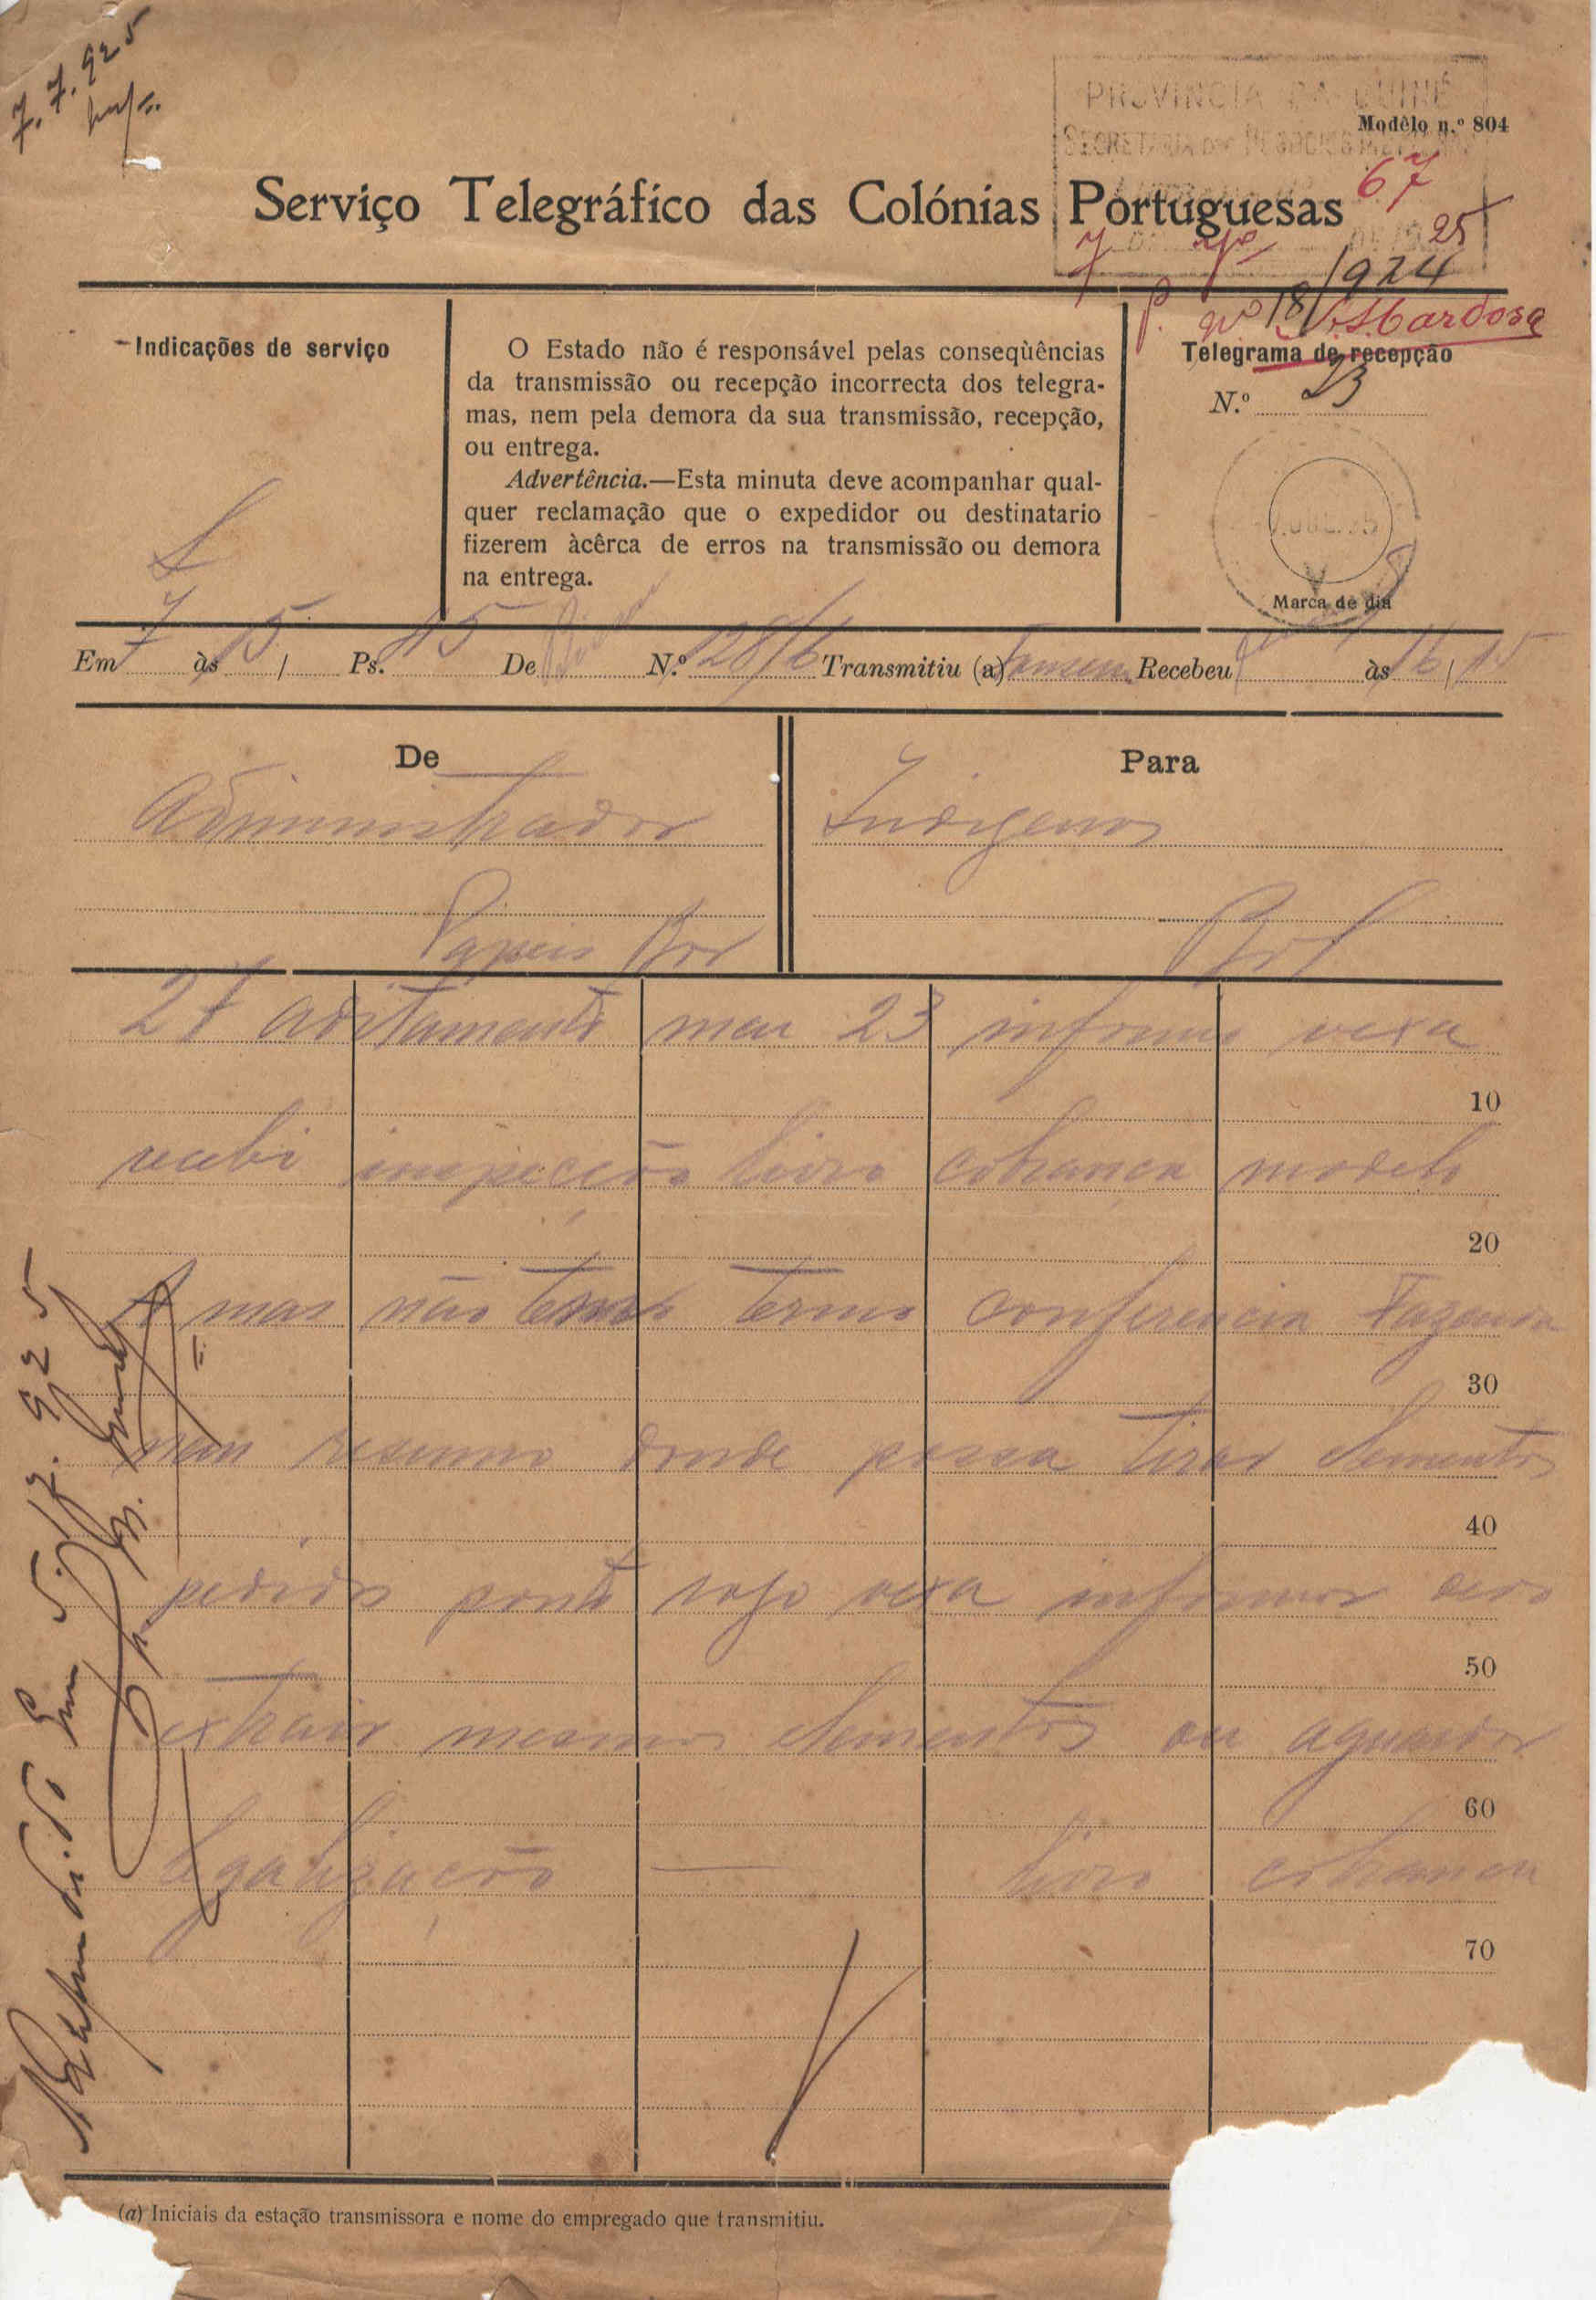 7.7.925
PROVINCIA DA GUINÉ
Modêlo n.º 804
SECRETARIA DOS NEGOCIOS INDIGENAS
67
Serviço Telegráfico das Colónias Portuguesas
7 7º 25
1924
P. nº 18
Cardoso
Indicações de serviço
O Estado não é responsável pelas conseqùências
da transmissão ou recepção incorrecta dos telegra-
mas, nem pela demora da sua transmissão, recepção,
ou entrega.
Advertência.—Esta minuta deve acompanhar qual-
quer reclamação que o expedidor ou destinatario
fizerem àcêrca de erros na transmissão ou demora
na entrega.
Telegrama de recepção
N.º 23
Marca de dia
Em 7 às 15 / Ps. 45 De N.º 128/6 Transmitiu (a) Recebeu às 16 / 15
De
Administrador
Papeis Bor
Para
Indigenas
Bol
27 aditamento meu 23 informo vexa
10
recebi inspecção livro cobrança modelo
20
A mas não termo conferencia Fazenda
30
nem resumo donde possa tirar elementos
40
pedidos ponto rogo vexa informar devo
50
extrair mesmos elementos ou aguardar
60
legalização — livro cobrança
70
Em 5.12.925
(a) Iniciais da estação transmissora e nome do empregado que transmitiu.